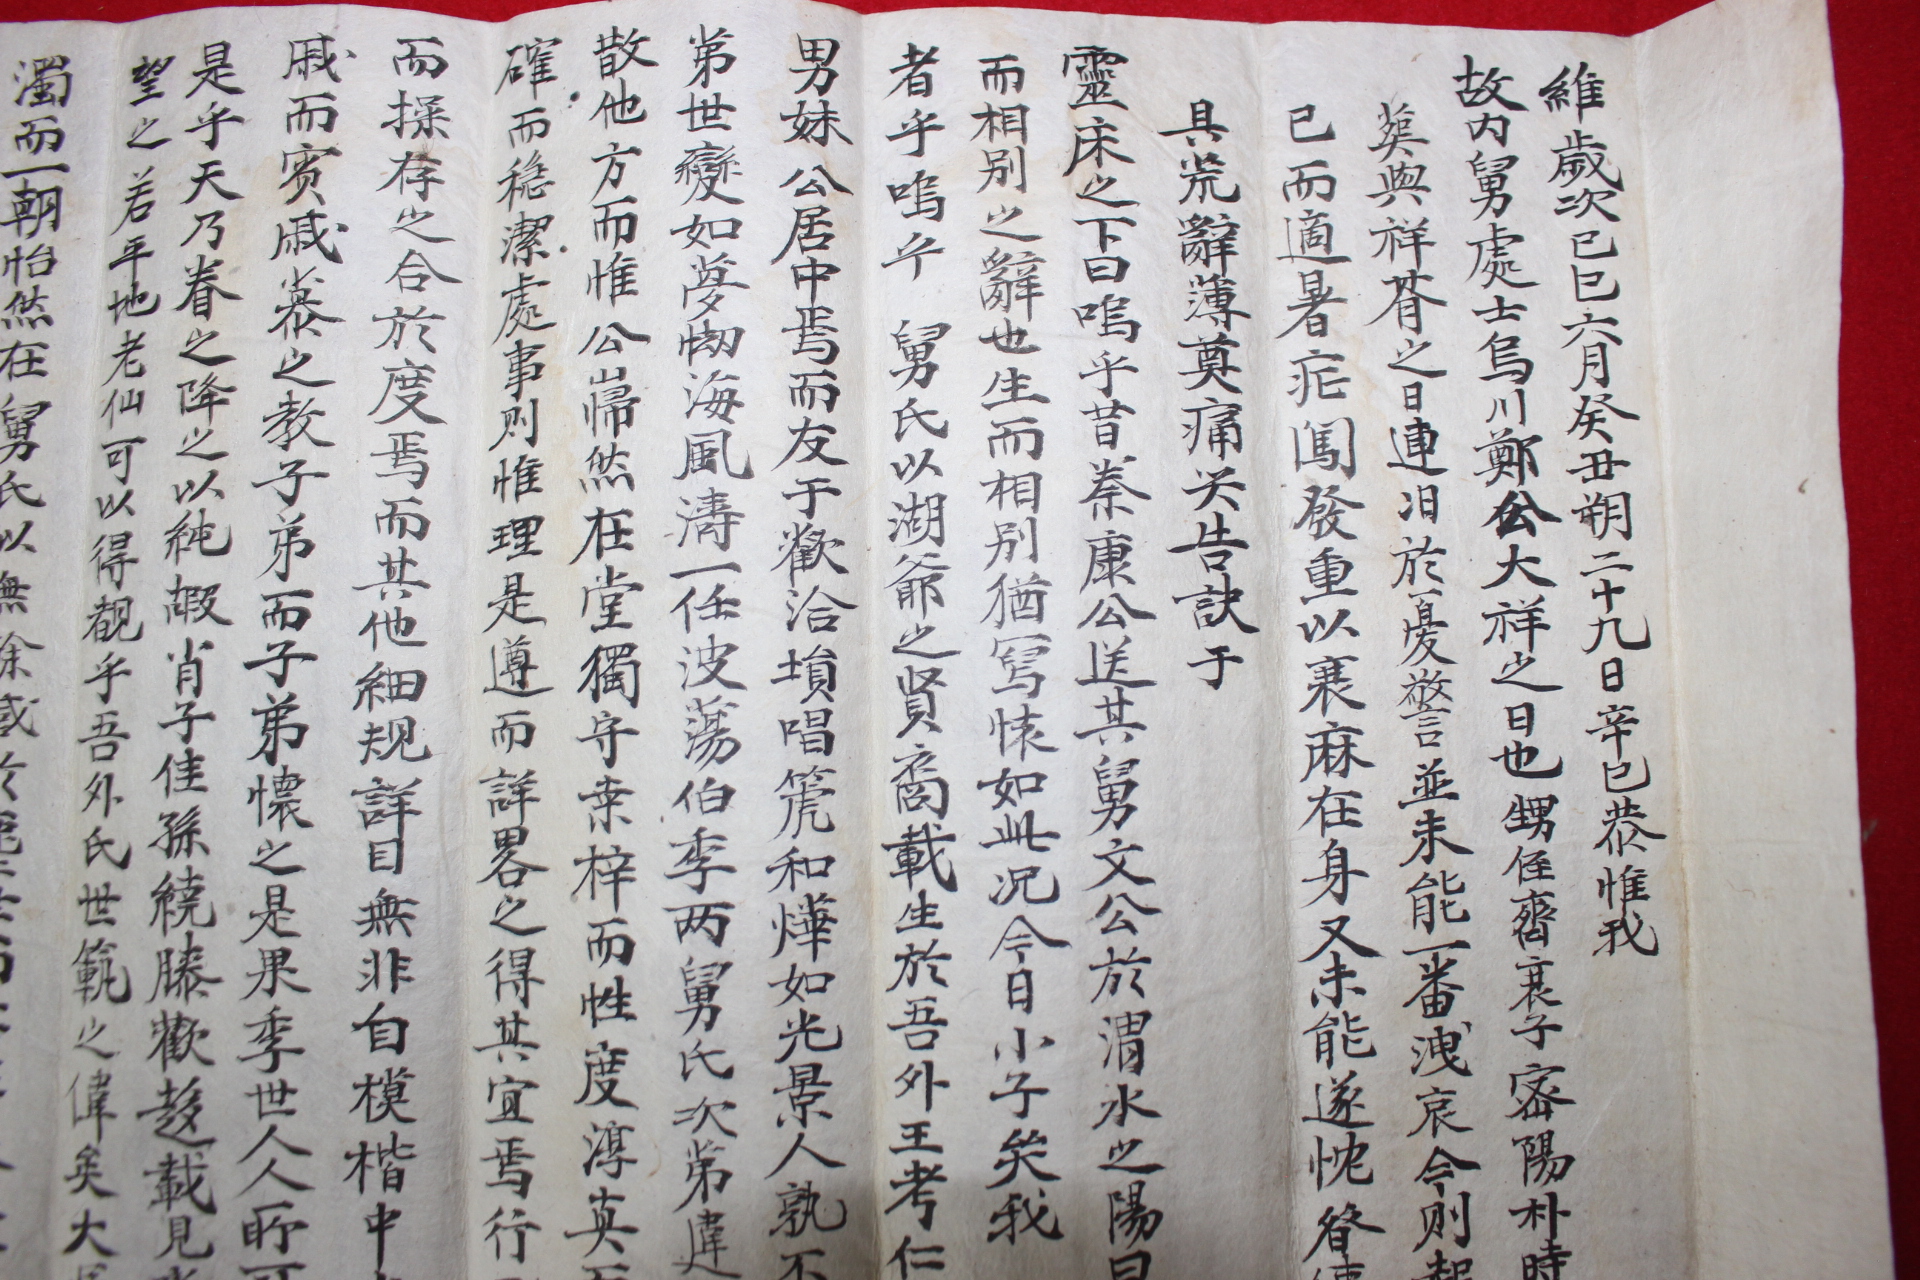 維歲次己巳六月癸丑朔二十九日辛巳恭惟我
故內舅處士烏川鄭公大祥之日也甥侄齊衰子密陽朴時
葬與祥朞之日連汨於憂警並未能一番洩哀今則
已而適暑疟闖發重以衰麻在身又未能遂忱
具荒辭薄奠痛哭告訣于
靈床之下曰嗚乎昔秦康公送其舅文公於渭水之陽曰
而相別之辭也生而相別猶寫懷如此况今日小子矣我
者乎嗚乎 舅氏以湖爺之賢裔載生於吾外王考仁
男妹公居中焉而友于歡洽塤唱箎和燁如光景人孰不
弟世變如夢㤼海風濤一任波蕩伯季两舅氏次第違
散他方而惟公巋然在堂獨守桒梓而性度淳真
確而穏潔處事則惟理是遵而詳畧之得其宜焉行
而操存之合於度焉而其他細規詳目無非自模楷中
戚而賓戚慕之敎子弟而子弟懷之是果季世人人所可
是乎天乃眷之降之以純嘏肖子佳孫繞膝歡趍載見
望之若平地老仙可以得覩乎吾外氏世範之偉矣大
濁而一朝怡然在舅氏以無餘憾於